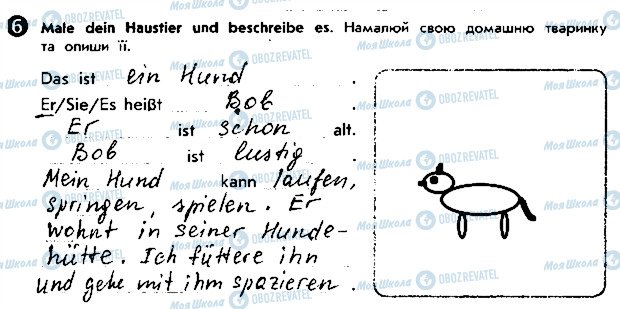 6 Male dein Haustier und beschreibe es. Намалюй свою домашню тваринку
та опиши її.
Das ist ein Hund .
Er/Sie/Es heißt Bob .
Er ist schon alt.
Bob ist lustig .
Mein Hund kann laufen,
springen, spielen. Er
wohnt in seiner Hunde-
hütte. Ich füttere ihn
und gehe mit ihm spazieren.